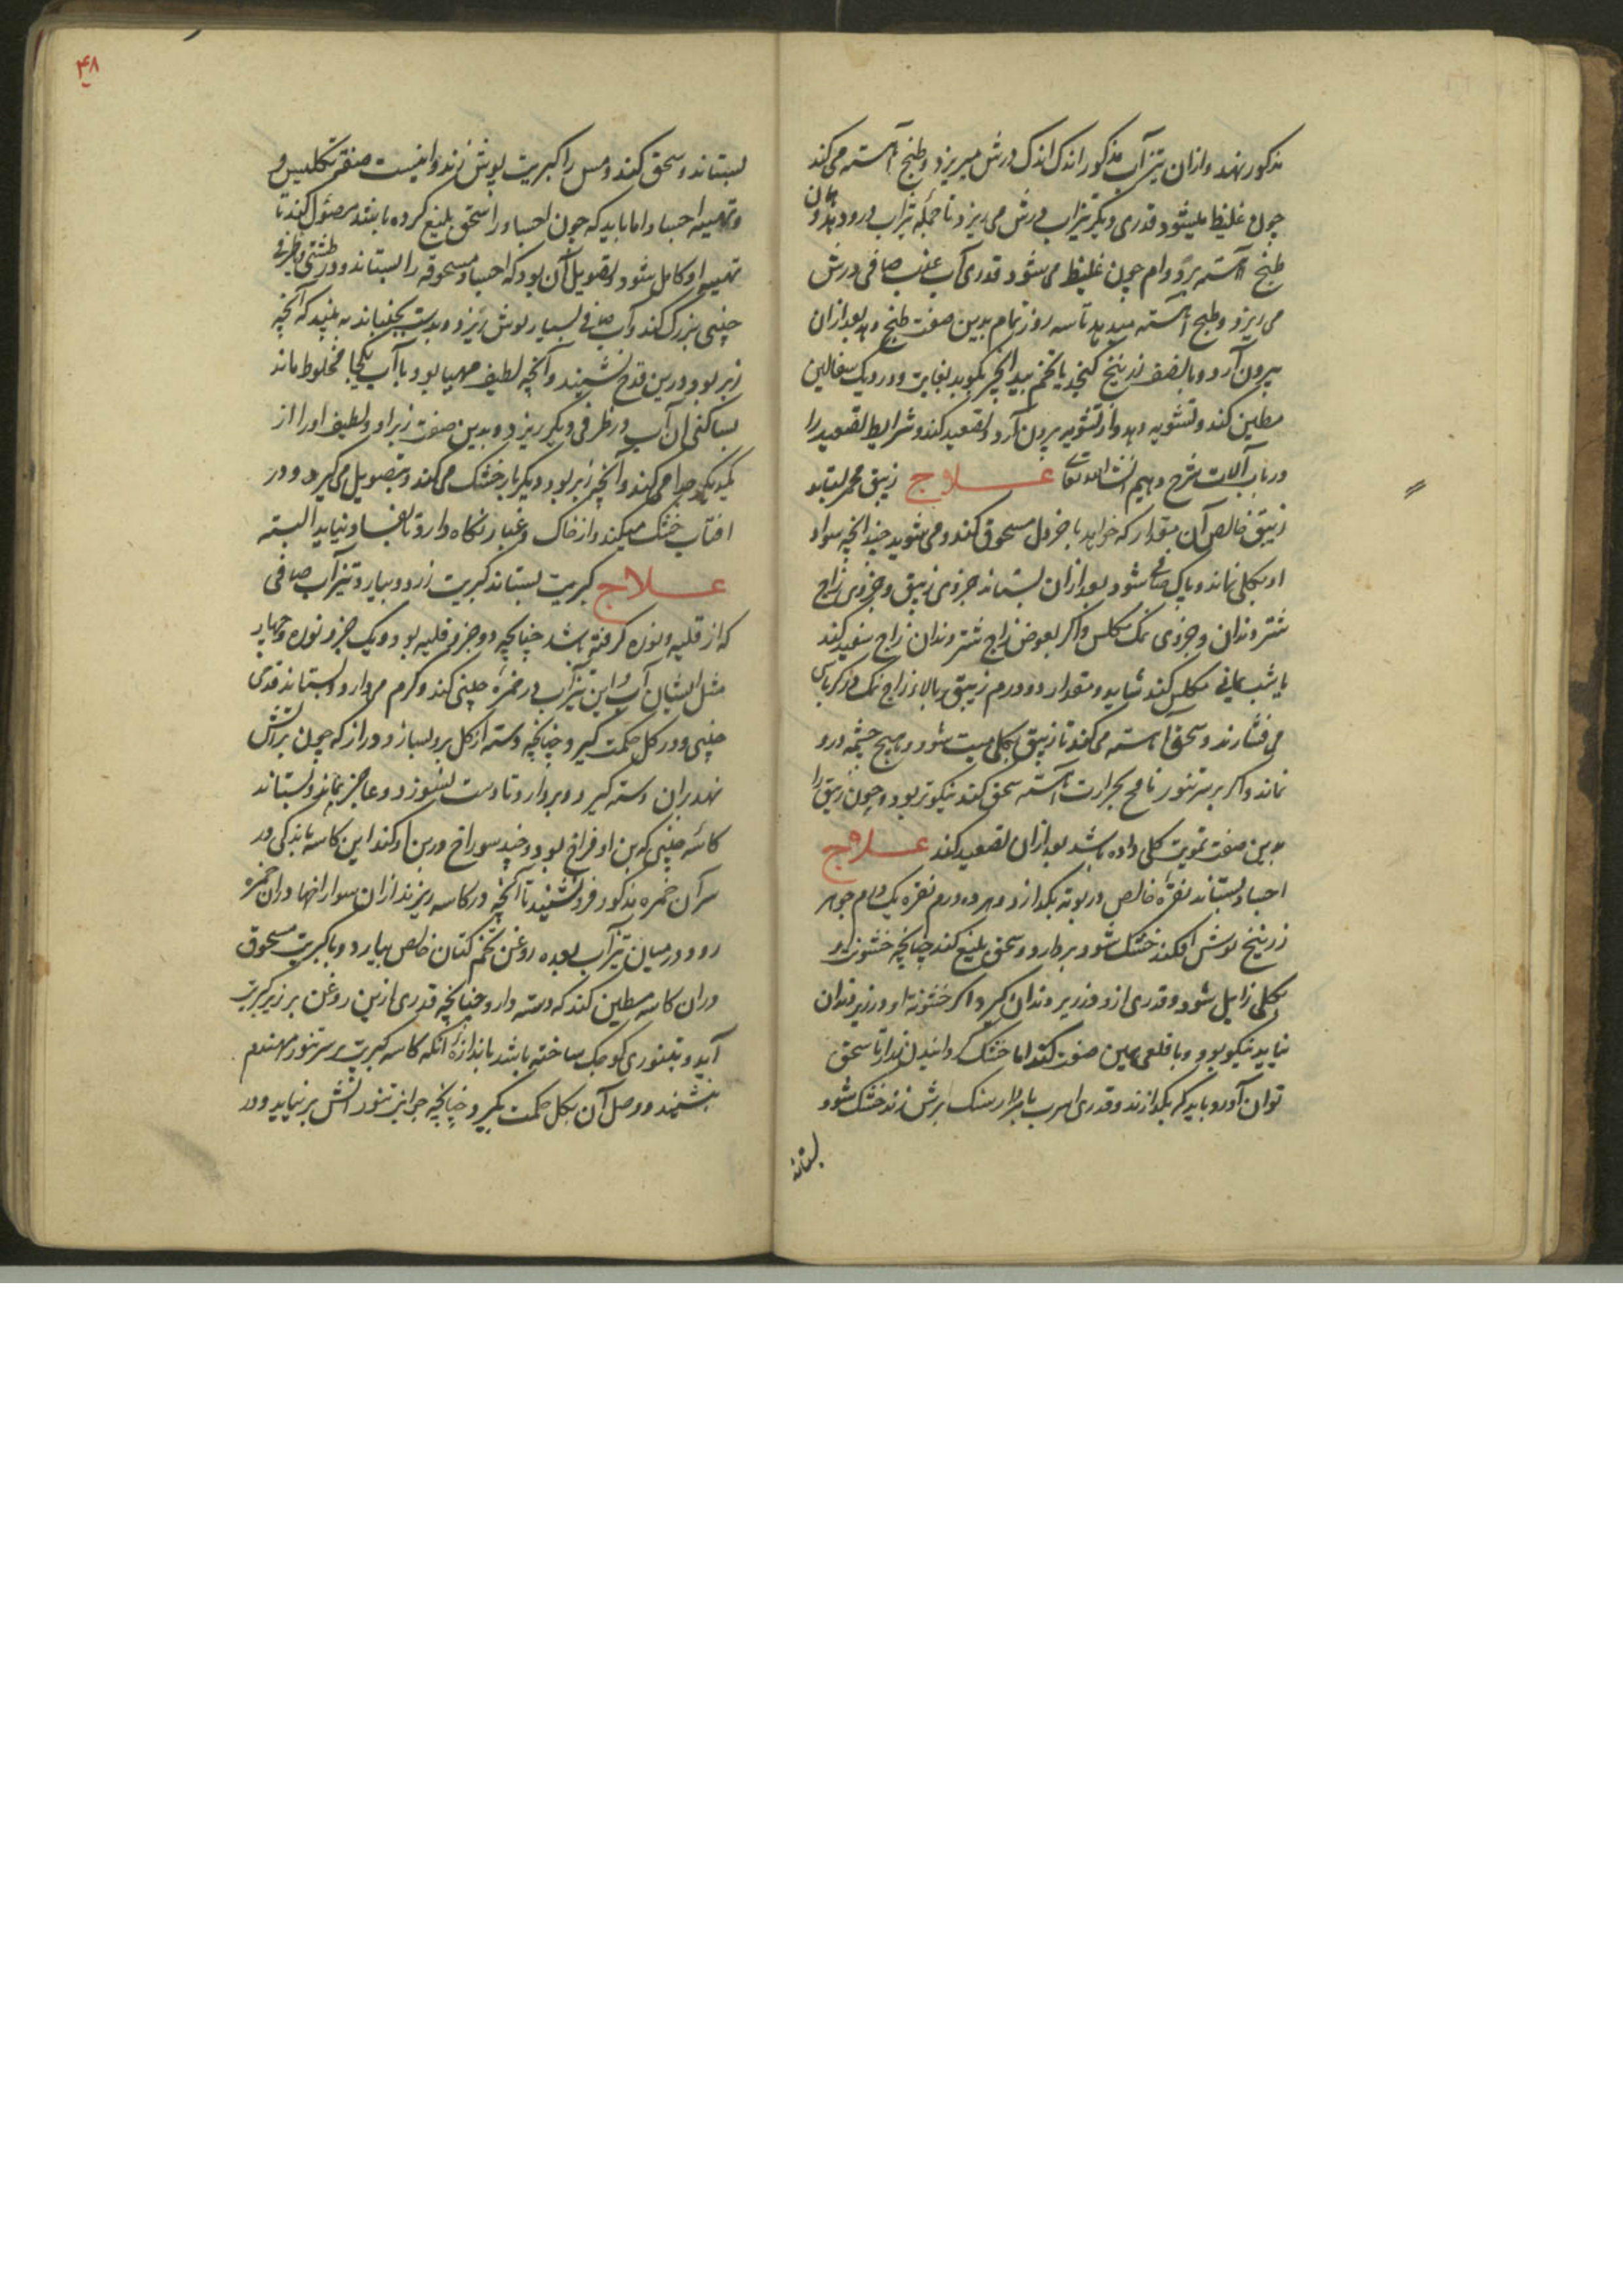 مذکور نهد و ازان تیز آب مذکور اندک اندک درش میریزد و طبخ آهسته می کند
چون غلیظ میشود قدری دیگر تیزاب درش می ریزد تا جمله تیزاب درود بدو همان
طبخ آهسته بر دوام چون غلیظ می شود قدری آب عذب صافی درش
می ریزد و طبخ آهسته میدهد تا سه روز تمام بدین صفت طبخ دهد بعد ازان
بیرون آرد و با نصف زرنیخ کنجد یا تخم بید انجیر بکوبد بغایت و در دیک سفالین
مطین کند و تشویه دهد و از تشویه بیرون آرد و تصعید کند و شرایط تصعید را
در باب آلات شرح دهیم انشاالله تعالی علاج زیبق محمر بستاند
زیبق خالص آن مقدار که خواهد با خردل مسحوق کند و می شوید چندانچه سواد
او بکلی نماند و پاک صافی شود بعد ازان بستاند جزوی زیبق و جزوی زاج
شتر دندان و جزوی نمک مکلس و اکر بعوض زاج شتر دندان زاج سفید کند
یا شب یمانی مکلس کند شاید و مقدار دو درم زیبق بالاء زاج نمک در کرباس
می فشارند و سحق آهسته می کند تا زیبق بکلی میت شود و هیچ چشمه درو
نماند و اکر بر سر تنور تا مح بحرارت آهسته سحق کند نیکوتر بود و چون زیبق را
بدین صفت تمویت کلی داده باشد بعد ازان تصعید کند علاج
اجساد بستاند نقره خالص در بوته بکدازد و بهر ده درم نقره یک درم جوهر
زرنیخ بوش افکند خشک شود بردارد و سحق بلیغ کند چنانچه خشونت او
بکلی زایل شود و قدری ازو در زیر دندان کیرد اکر خشونة او در زیر دندان
نیاید نیکو بود و با قلعی همین صفت کند اما خشک کردانیدن ندارد تا سحق
توان آورد باید که بکدازند و قدری اسرب یا مردارسنک برش زند خشک شود
بستاند
۴۸
بستاند و سحق کند و مس را کبریت بوش زند و اینست صفت تکلیس و
و تهبیه اجساد اما باید که چون اجساد را سحق بلیغ کرده باشد مصئول کند تا
تهبیه او کامل شود و تصویل آن بود که اجساد مسحوقه را بستاند و در طشتی یا ظرفی
چینی بزرک کند و آب صافی بسیار بوش ریزد و بدست بجنباند به بیند که آنچه
زبر بود در بن قدح نشیند و آنچه لطیف مهیا بود با آب یکجا مخلوط ماند
بسا کنی ان آب در ظرفی دیکر ریزد و بدین صفت زبر او و لطیف او را از
یکدیکر جدا می کند و آنچه زبر بود دیکر بار خشک می کند و تصویل می کیرد و در
افتاب خشک میکند و از خاک و غبار نکاه دارد تا بفساد نیاید البته
علاج کبریت بستاند کبریت زرد و بیارد تیز آب صافی
که از قلیه و نوره کرفته باشد چنانچه دو جزو قلیه بود و یک جزو نوره و چهار
مثل ایشان آب و این تیز آب در خمرهٔ چینی کند و کرم می دارد و بستاند قدحی
چینی و در کل حکمت کیرد چنانچه دسته از کل برو بسازد و دراز که چون بر آتش
نهد بران دسته کیرد و بردارد تا دست نسوزد و عاجز نماند و بستاند
کاسهٔ چینی که بن او فراخ بود و چند سوراخ در بن او کند این کاسه باندکی در
سر آن خمره مذکور فرو نشیند تا آنچه در کاسه ریزند ازان سوراخها دران خمره
رود و در میان تیز آب بعده روغن تخم کتان خالص بیارد و با کبریت مسحوق
دران کاسه مطین کند که دسته دارد چنانچه قدری ازین روغن بر زیر کبریت
آید و تنوری کوچک ساخته باشد باندازهٔ آنکه کاسه کبریت بر سر تنور مهندم
بنشیند و وصل آن بکل حکمت بکیرد چنانچه جوانب تنور اتش بر نیاید و در